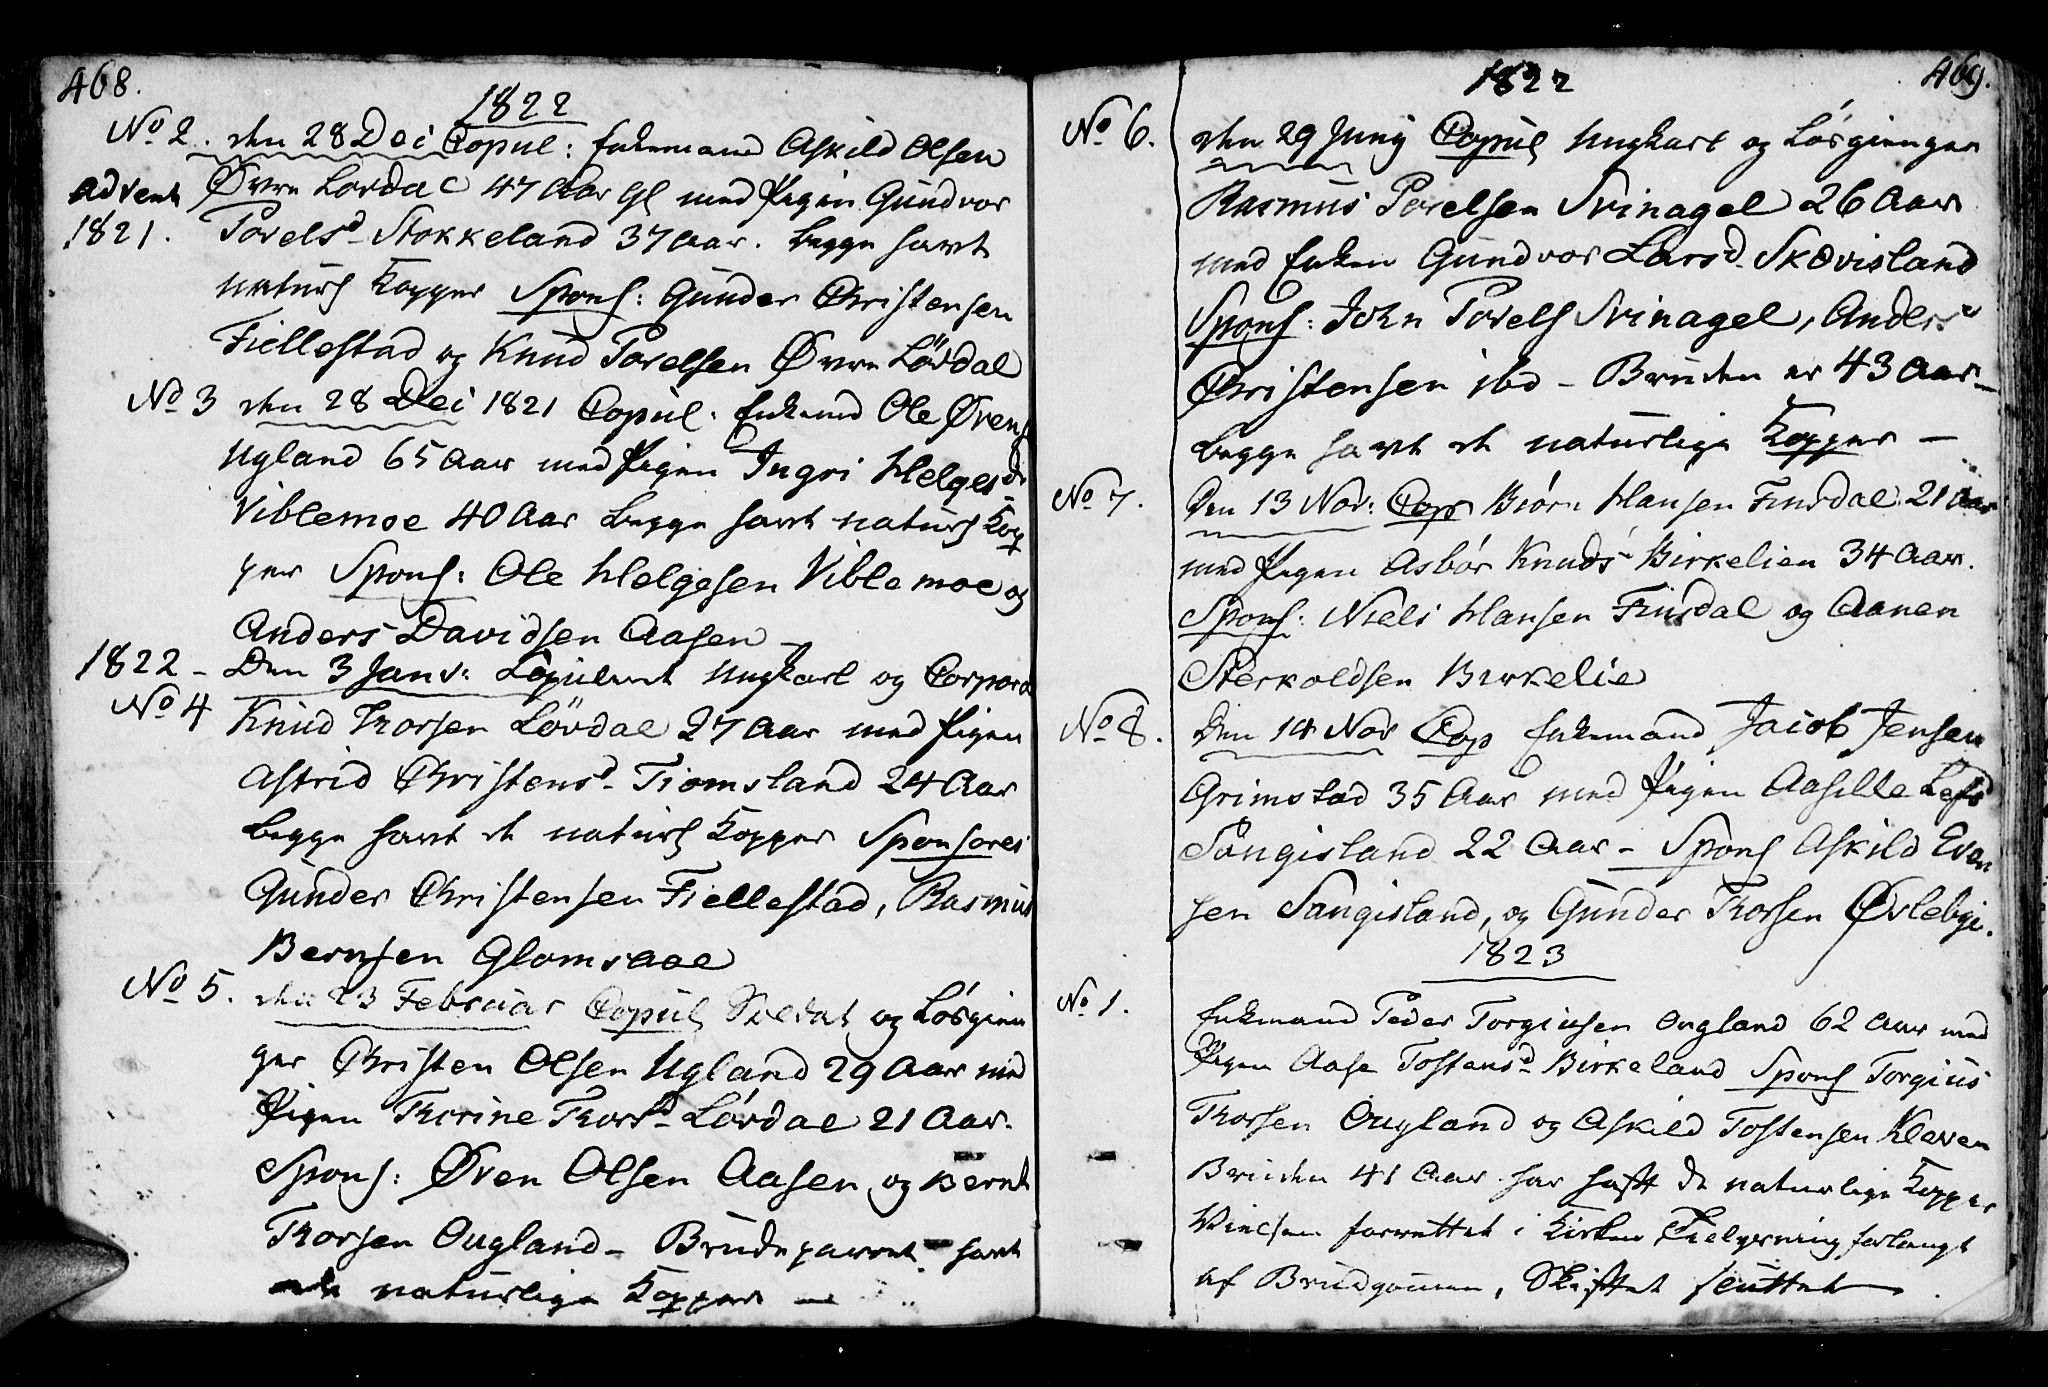 468.
1822
No 2. den 28 Dec Copul: Enkemand Askild Olsen
Advent Øvre Løvdal 47 Aar gl med Pigen Gundvor
1821. Povelsd Stokkeland 37 Aar. begge havt
naturl Kopper Spons: Gunder Christensen
Fiellestad og Knud Povelsen Øvre Løvdal
No 3 den 28 Dec 1821 Copul. Enkemd Ole Øvens
Ugland 65 Aar med Pigen Ingri Helgesd
Viblemoe 40 Aar begge havt naturl Kop
per Spons: Ole Helgesen Viblemoe og
Anders Davidsen Aasen –
1822 – Den 3 Janv: Copuleret Ungkarl og Corporal
No 4 Knud Thorsen Løvdal 27 Aar med Pigen
Astrid Christensd Tiomsland 24 Aar
begge havt de naturl Kopper Sponsores
Gunder Christensen Fiellestad, Rasmus
Berntsen Glomsaae
No 5. den 23 Februar Copul Soldat og Løsgien
ger Christen Olsen Ugland 29 Aar med
Pigen Thorine Thorsd Løvdal 21 Aar.
Spons: Øven Olsen Aasen og Bernt
Thorsen Ougland – Brudeparret havt
naturlige Kopper –
469.
1822
No 6. den 29 Junij Copul Ungkarl og Løsgienger
Rasmus Povelsen Svinagel 26 Aar
med Enken Gundvor Larsd Skævisland
Spons: John Povels Svinagel, Anders
Christensen ibd – Bruden er 43 Aar –
begge havt de naturlige Kopper –
No 7. Den 13 Nov: Cop Biørn Hansen Finsdal 21 Aar
med Pigen Asbør Knuds Birkelien 34 Aar.
Spons: Niels Hansen Finsdal og Aanen
Sterkoldsen Birkelie
No 8. Den 14 Nov Cop Enkemand Jacob Jensen
Grimstad 35 Aar med Pigen Aasille
Sangisland 22 Aar – Spons Askild Even
sen Sangisland, og Gunder Thorsen Øvlebye.
1823
No 1. Enkmand Peder Torgiusen Ougland 62 Aar med
Pigen Aase Tostensd Birkeland Spons Torgius
Thorsen Ougland og Askild Tostensen Kleven
Bruden 41 Aar har haft de naturlige Kopper
Vielsen forrettet i Kirken forlangt
af Brudgommen, Skiftet sluttet